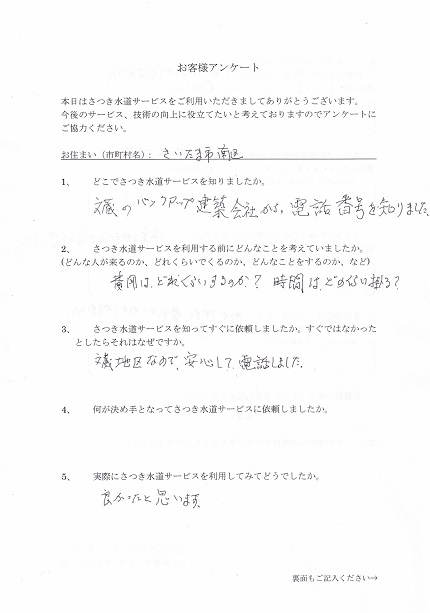 お客様アンケート
本日はさつき水道サービスをご利用いただきましてありがとうございます。
今後のサービス、技術の向上に役立てたいと考えておりますのでアンケートに
ご協力ください。
お住まい（市町村名）： さいたま市南区
1、 どこでさつき水道サービスを知りましたか。
文蔵のバックアップ建築会社から、電話番号を知りました
2、 さつき水道サービスを利用する前にどんなことを考えていましたか。
(どんな人が来るのか、どれくらいでくるのか、どんなことをするのか、など)
費用は、どれくらいするのか？ 時間は、どのくらい掛る？
3、 さつき水道サービスを知ってすぐに依頼しましたか。すぐではなかった
としたらそれはなぜですか。
文蔵地区なので、安心して、電話しました。
4、 何が決め手となってさつき水道サービスに依頼しましたか。
5、 実際にさつき水道サービスを利用してみてどうでしたか。
良かったと思います。
裏面もご記入ください→